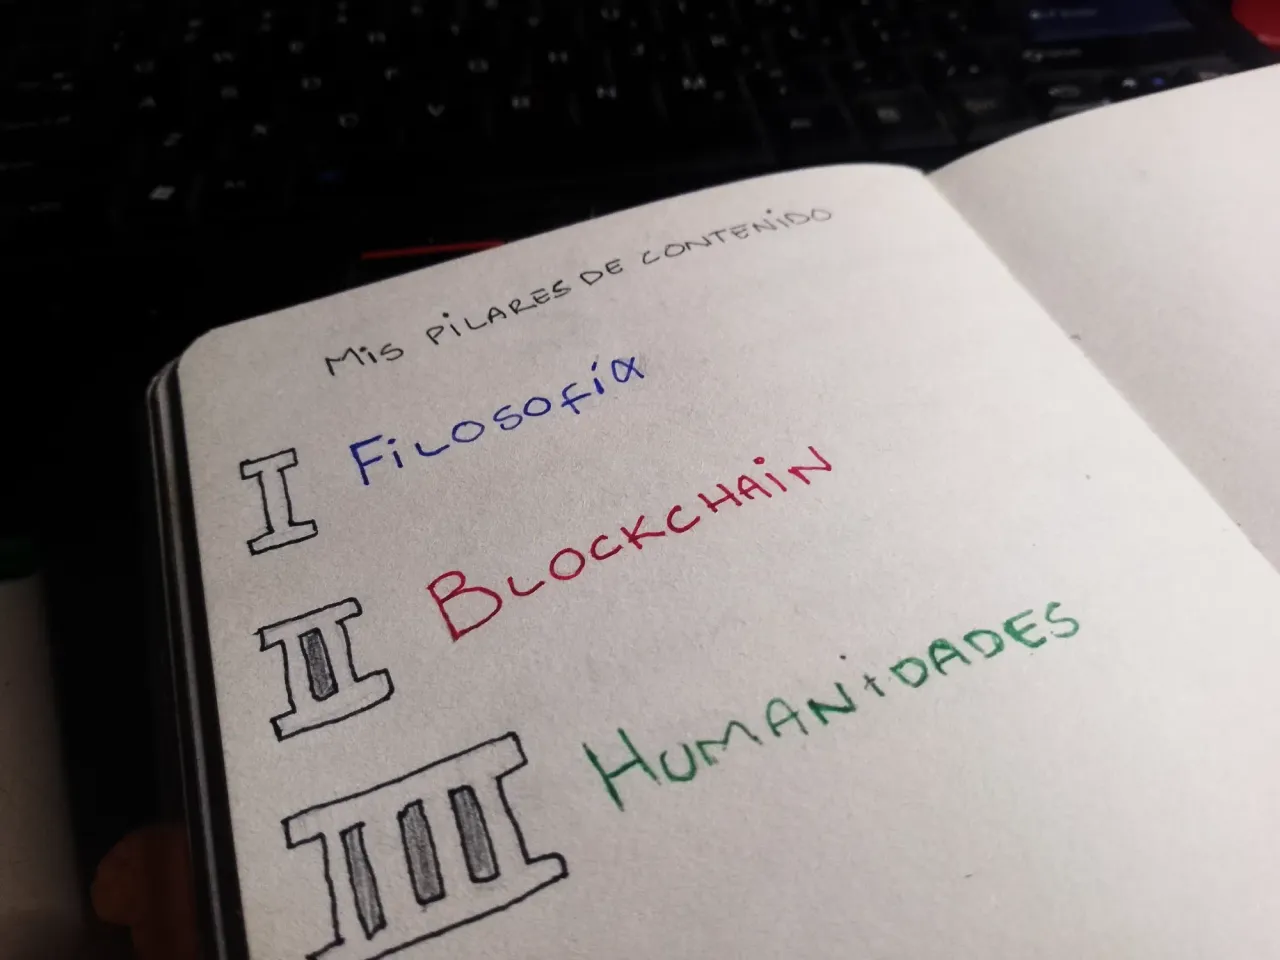 MiS PiLARES DE CONTENiDO
I FiLOSOfíα
II BLOCKCHAiN
III HUMANiDADES